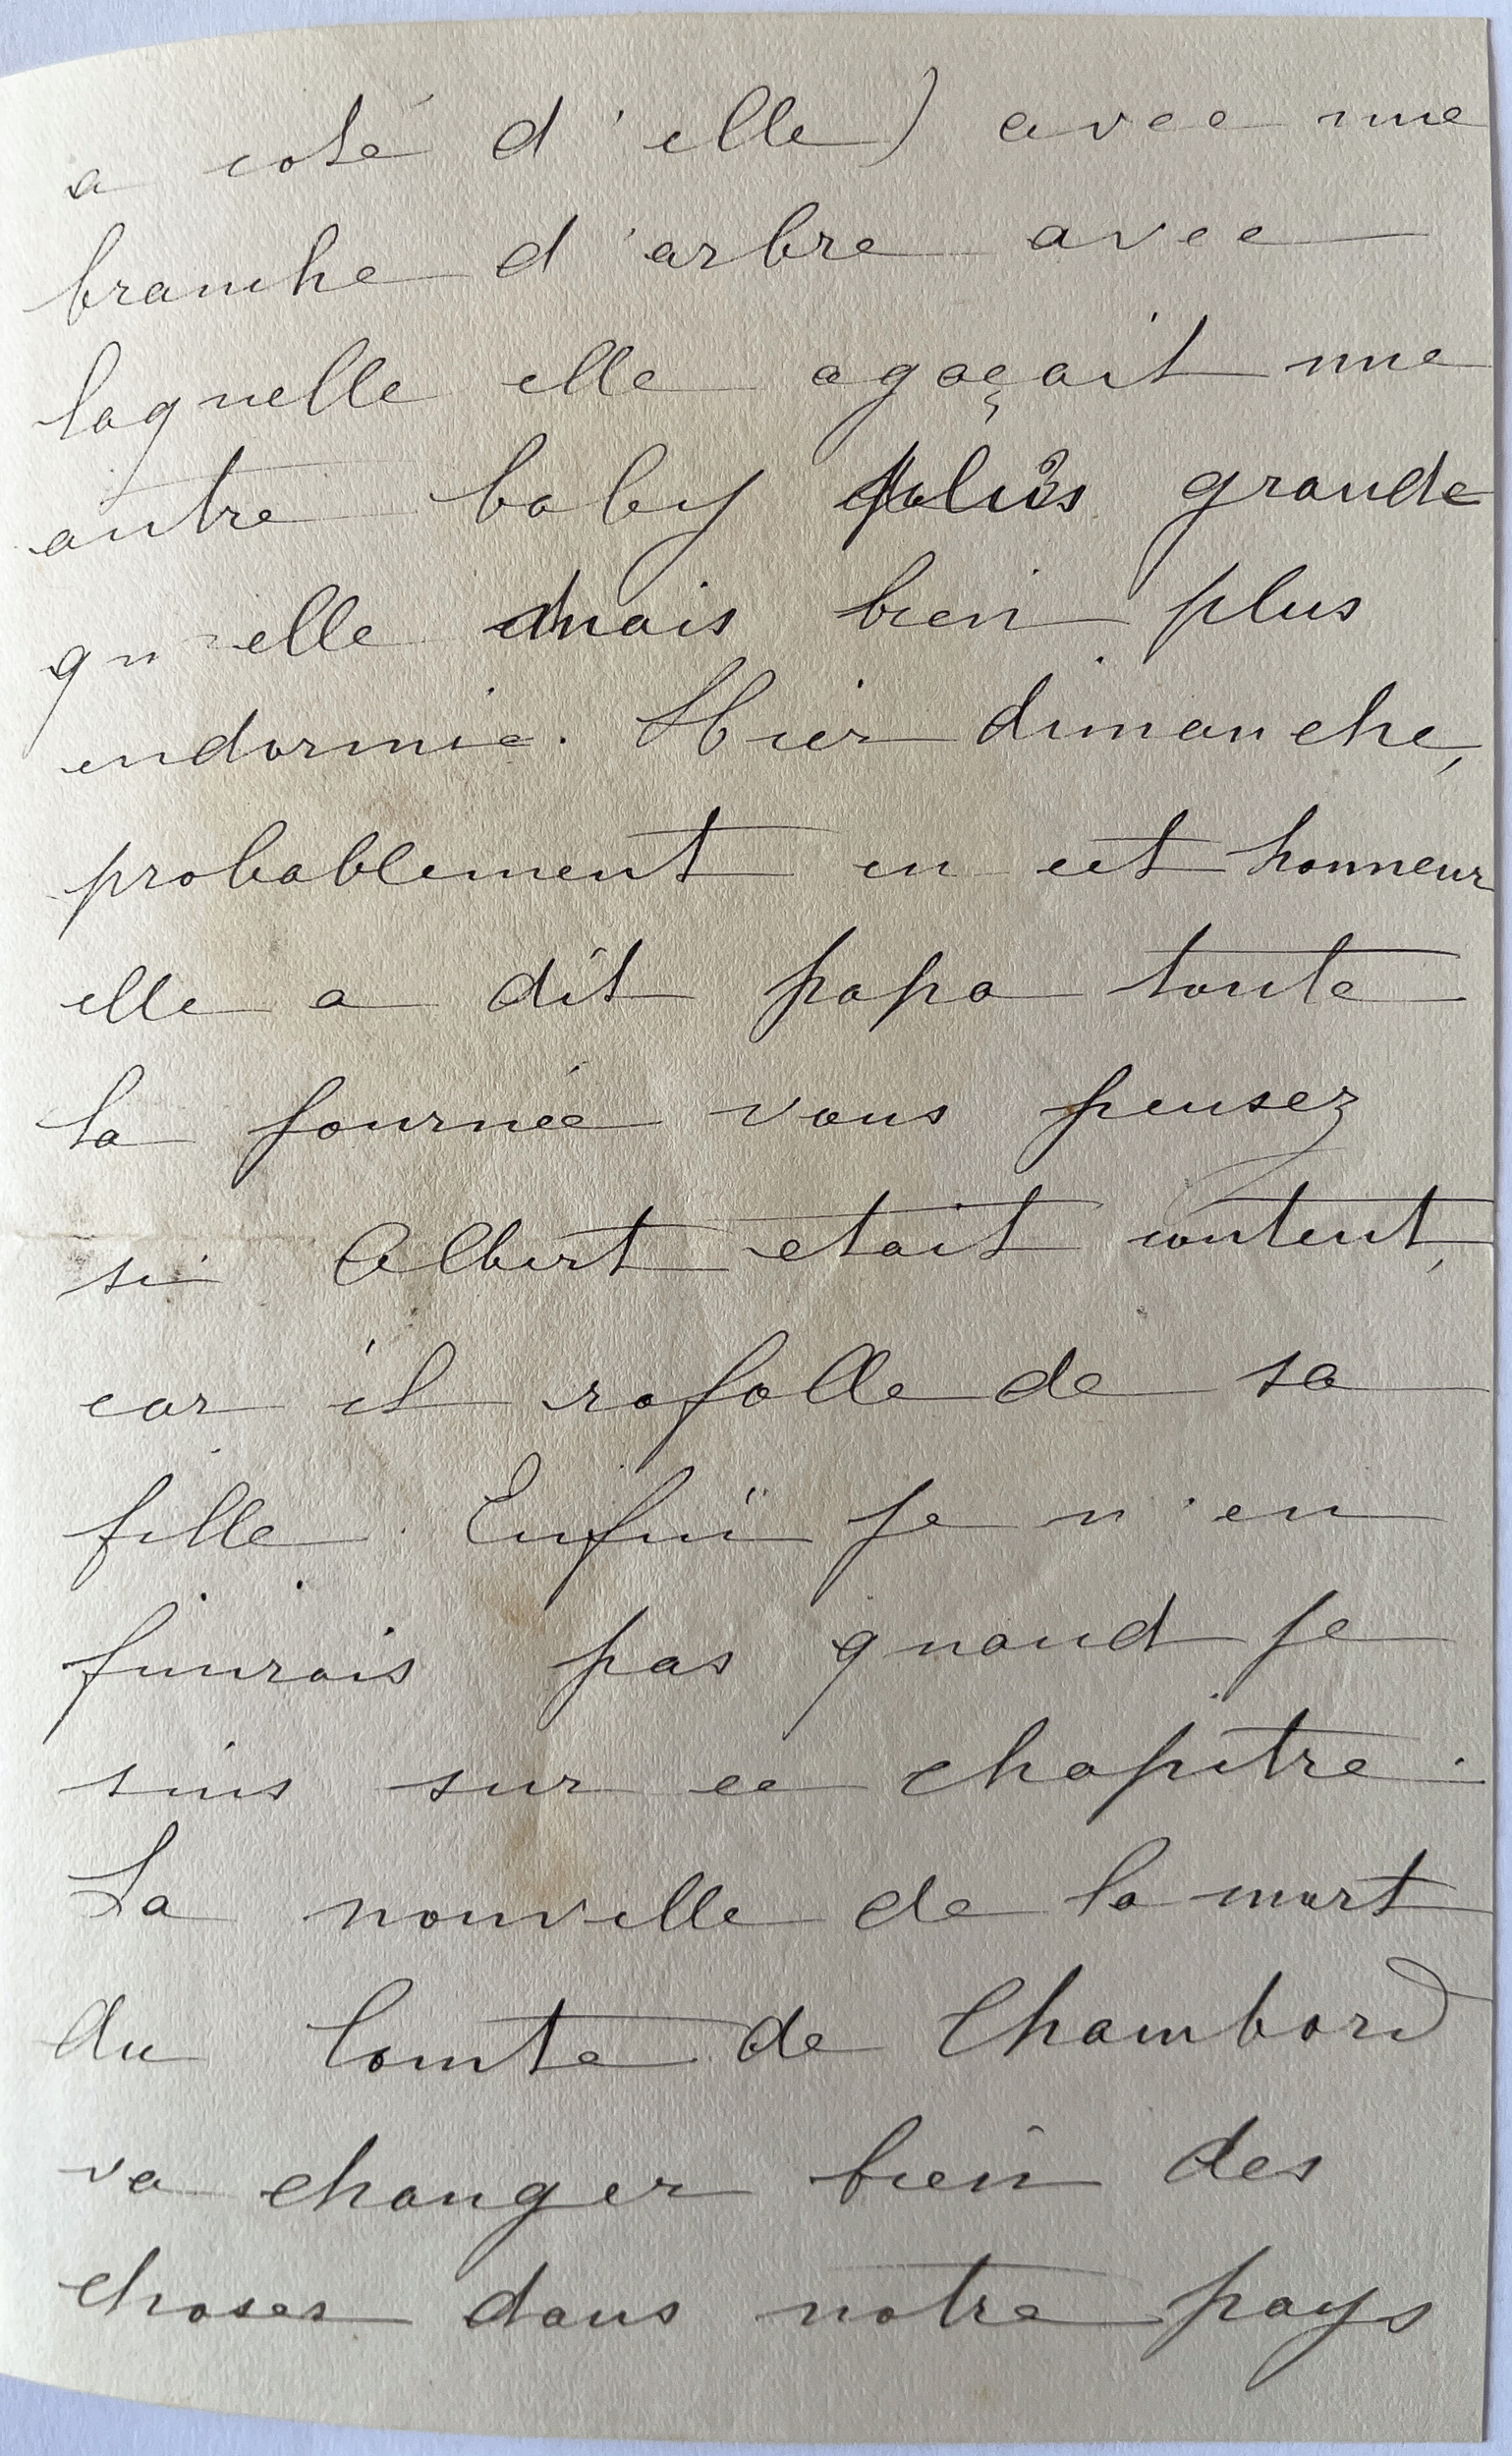 a coté d'elle) avec une
branche d'arbre avec
laquelle elle agaçait une
autre baby plus grande
qu'elle mais bien plus
endormie. Hier dimanche,
probablement en cet honneur
elle a dit papa toute
la journée vous pensez
si Albert etait content,
car il rafolle de sa
fille. Enfin je n'en
finirais pas quand je
suis sur ce chapitre.
La nouvelle de la mort
du Comte de Chambord
va changer bien des
choses dans notre pays